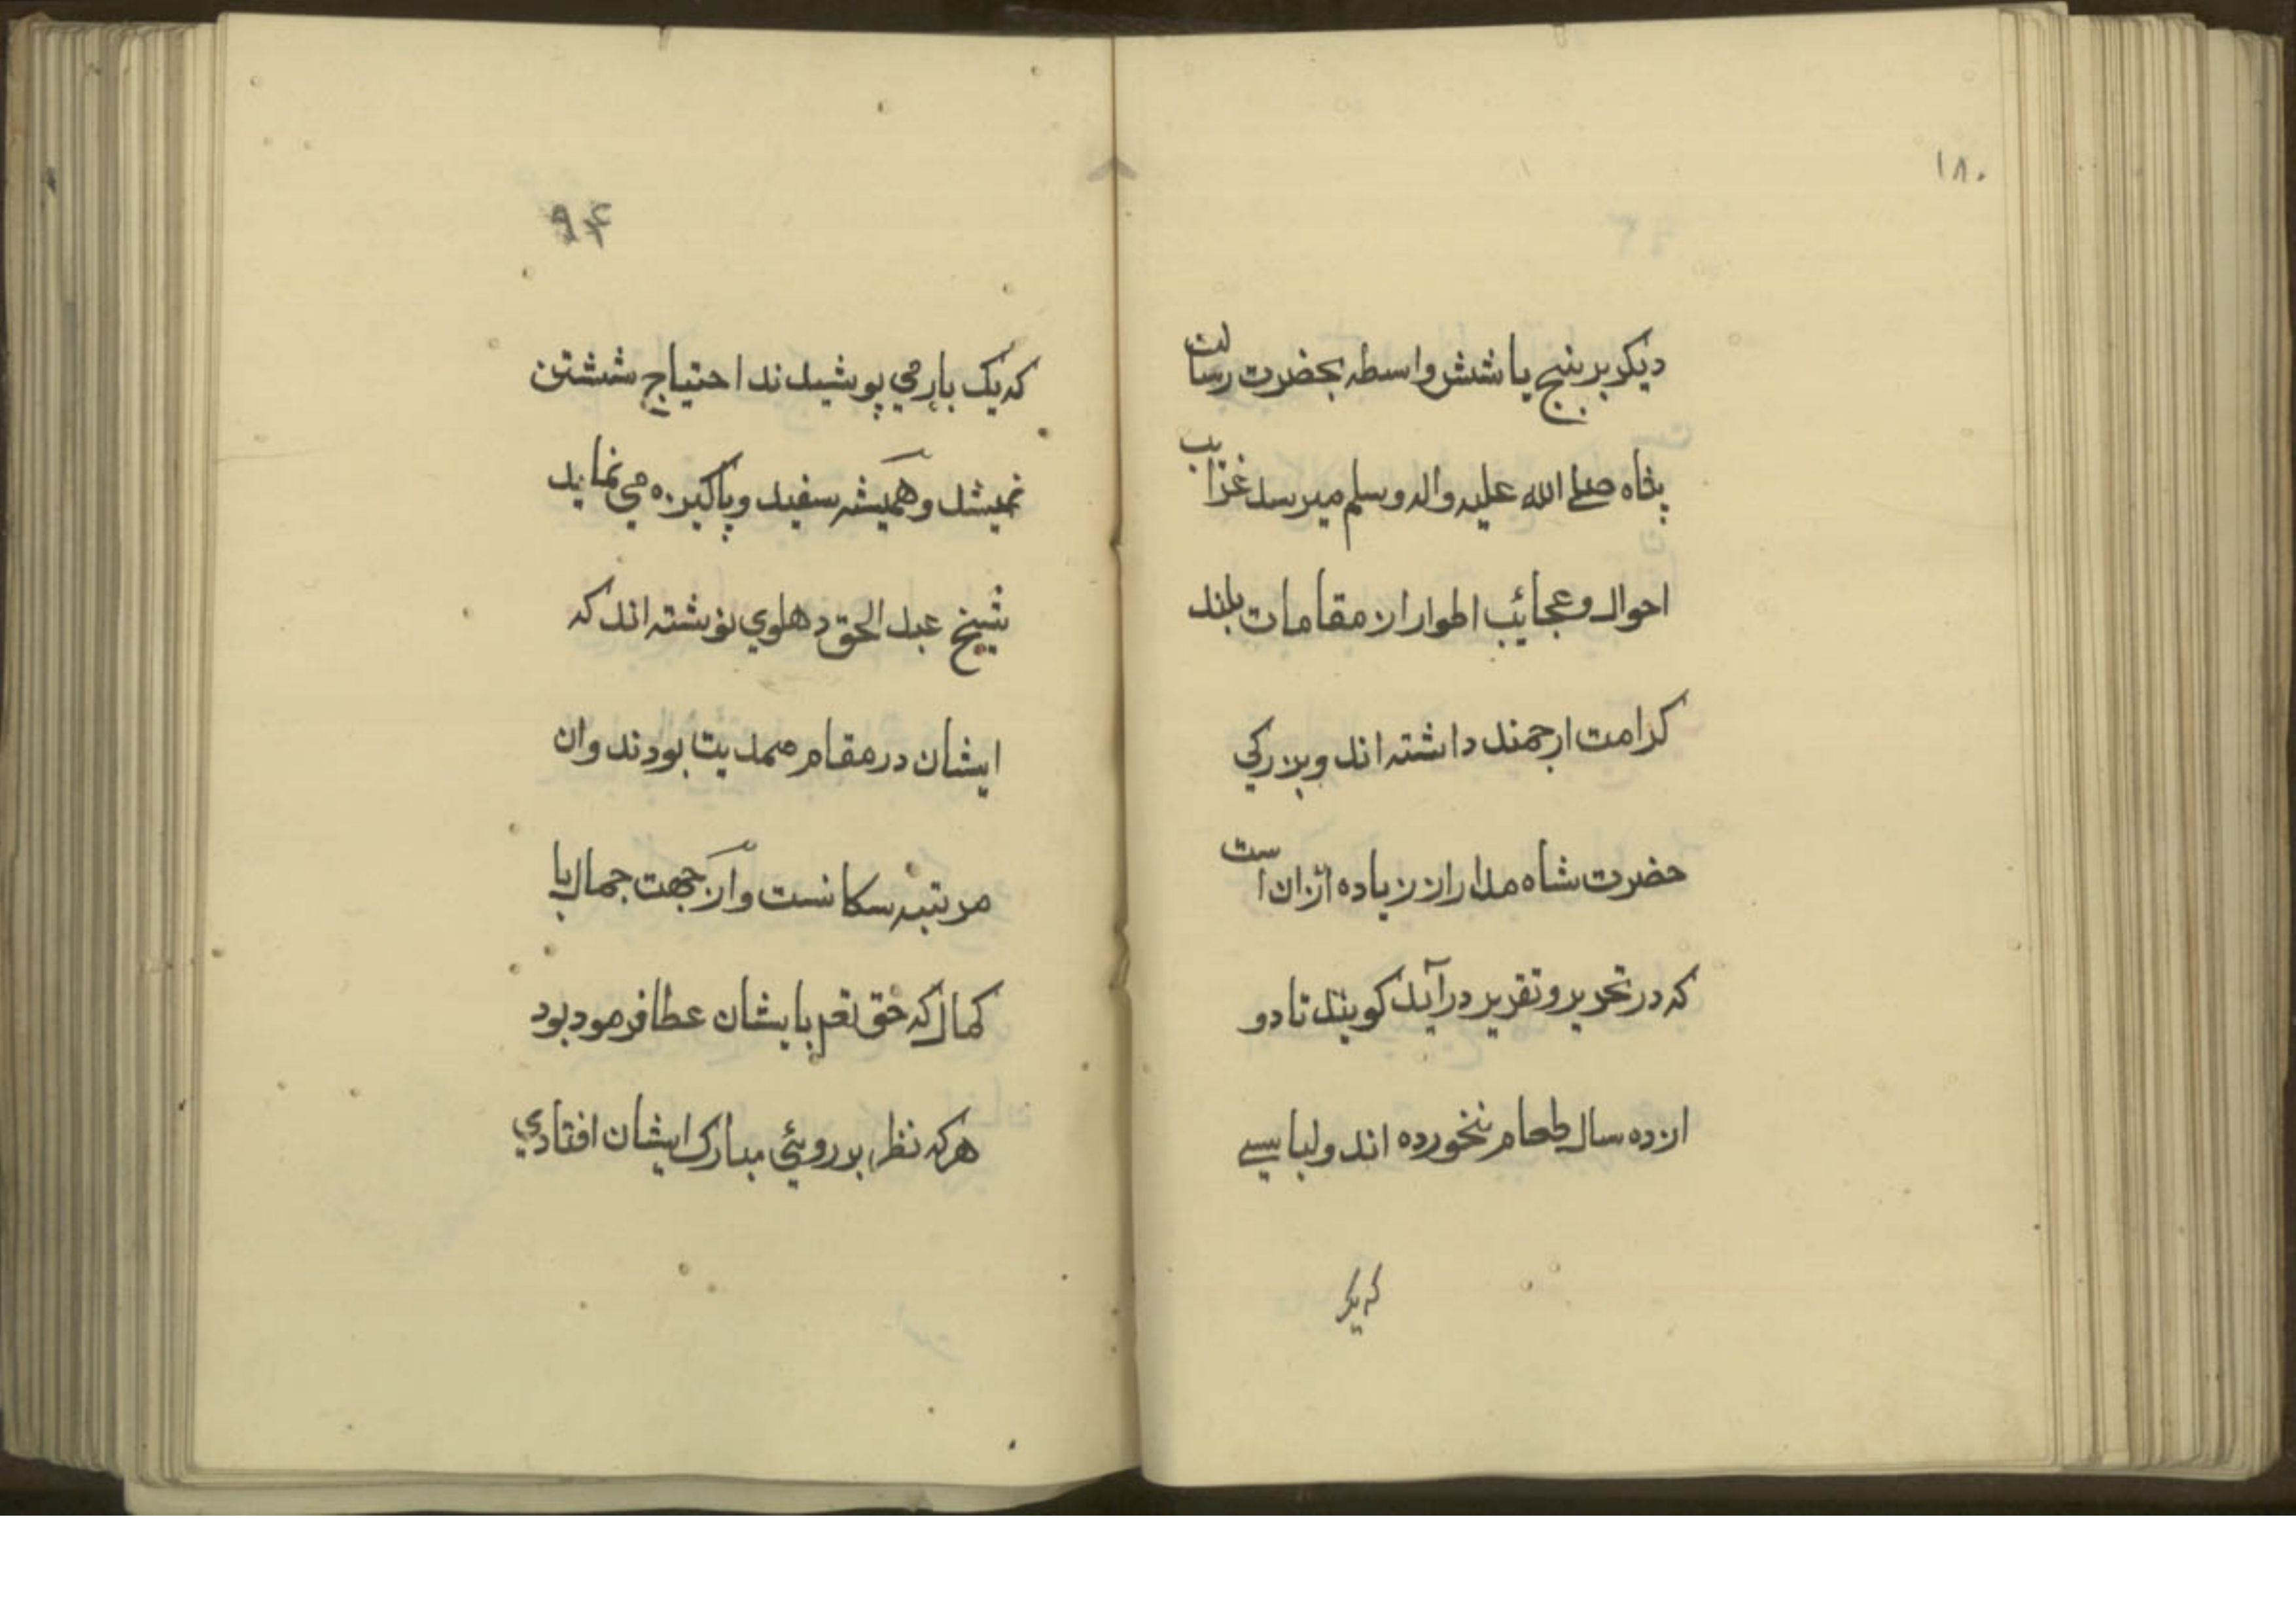 ۱۸۰
دیکر بر پنج یا شش واسطه بحضرت رسالت
پناه صلے الله علیه واله وسلم میرسد غرایب
احوال و عجائب اطوار از مقامات بلند
کرامت ارجمند داشته اند و بزرکي
حضرت شاه مدار ازن زیاده ازان است
که در تحریر و تقریر درآید کویند تا دو
ازده سال طعام نخورده اند ولباسے
که یک
۹۴
که یک بار مي پوشیدند احتیاج شستن
نمیشد و همیشه سفید و پاکیزه مي نماید
شیخ عبد الحق دهلوي نوشته اند که
ایشان در مقام صمدیت بودند وان
مرتبه سکانست واز جهت جمال با
کمال که حق تعم بایشان عطا فرمود بود
هرکه نظر بر روئي مبارک ایشان افتادي